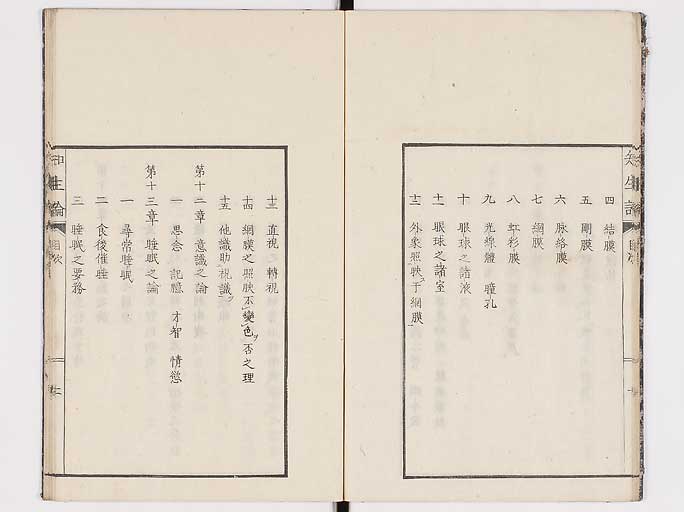 知生論
目次
四 結膜
五 剛膜
六 脉絡膜
七 網膜
八 虹彩膜
九 光線體 瞳孔
十 眼球之諸液
十一 眼球之諸室
十二 外象照映于網膜
知生論
目次
十三 直視之轉視
十四 網膜之照映不變色否之理
十五 他識助視識
第十二章 意識之論
一 思念 記臆 才智 情慾
第十三章 睡眠之論
一 尋常睡眠
二 食後催睡
三 睡眠之要務